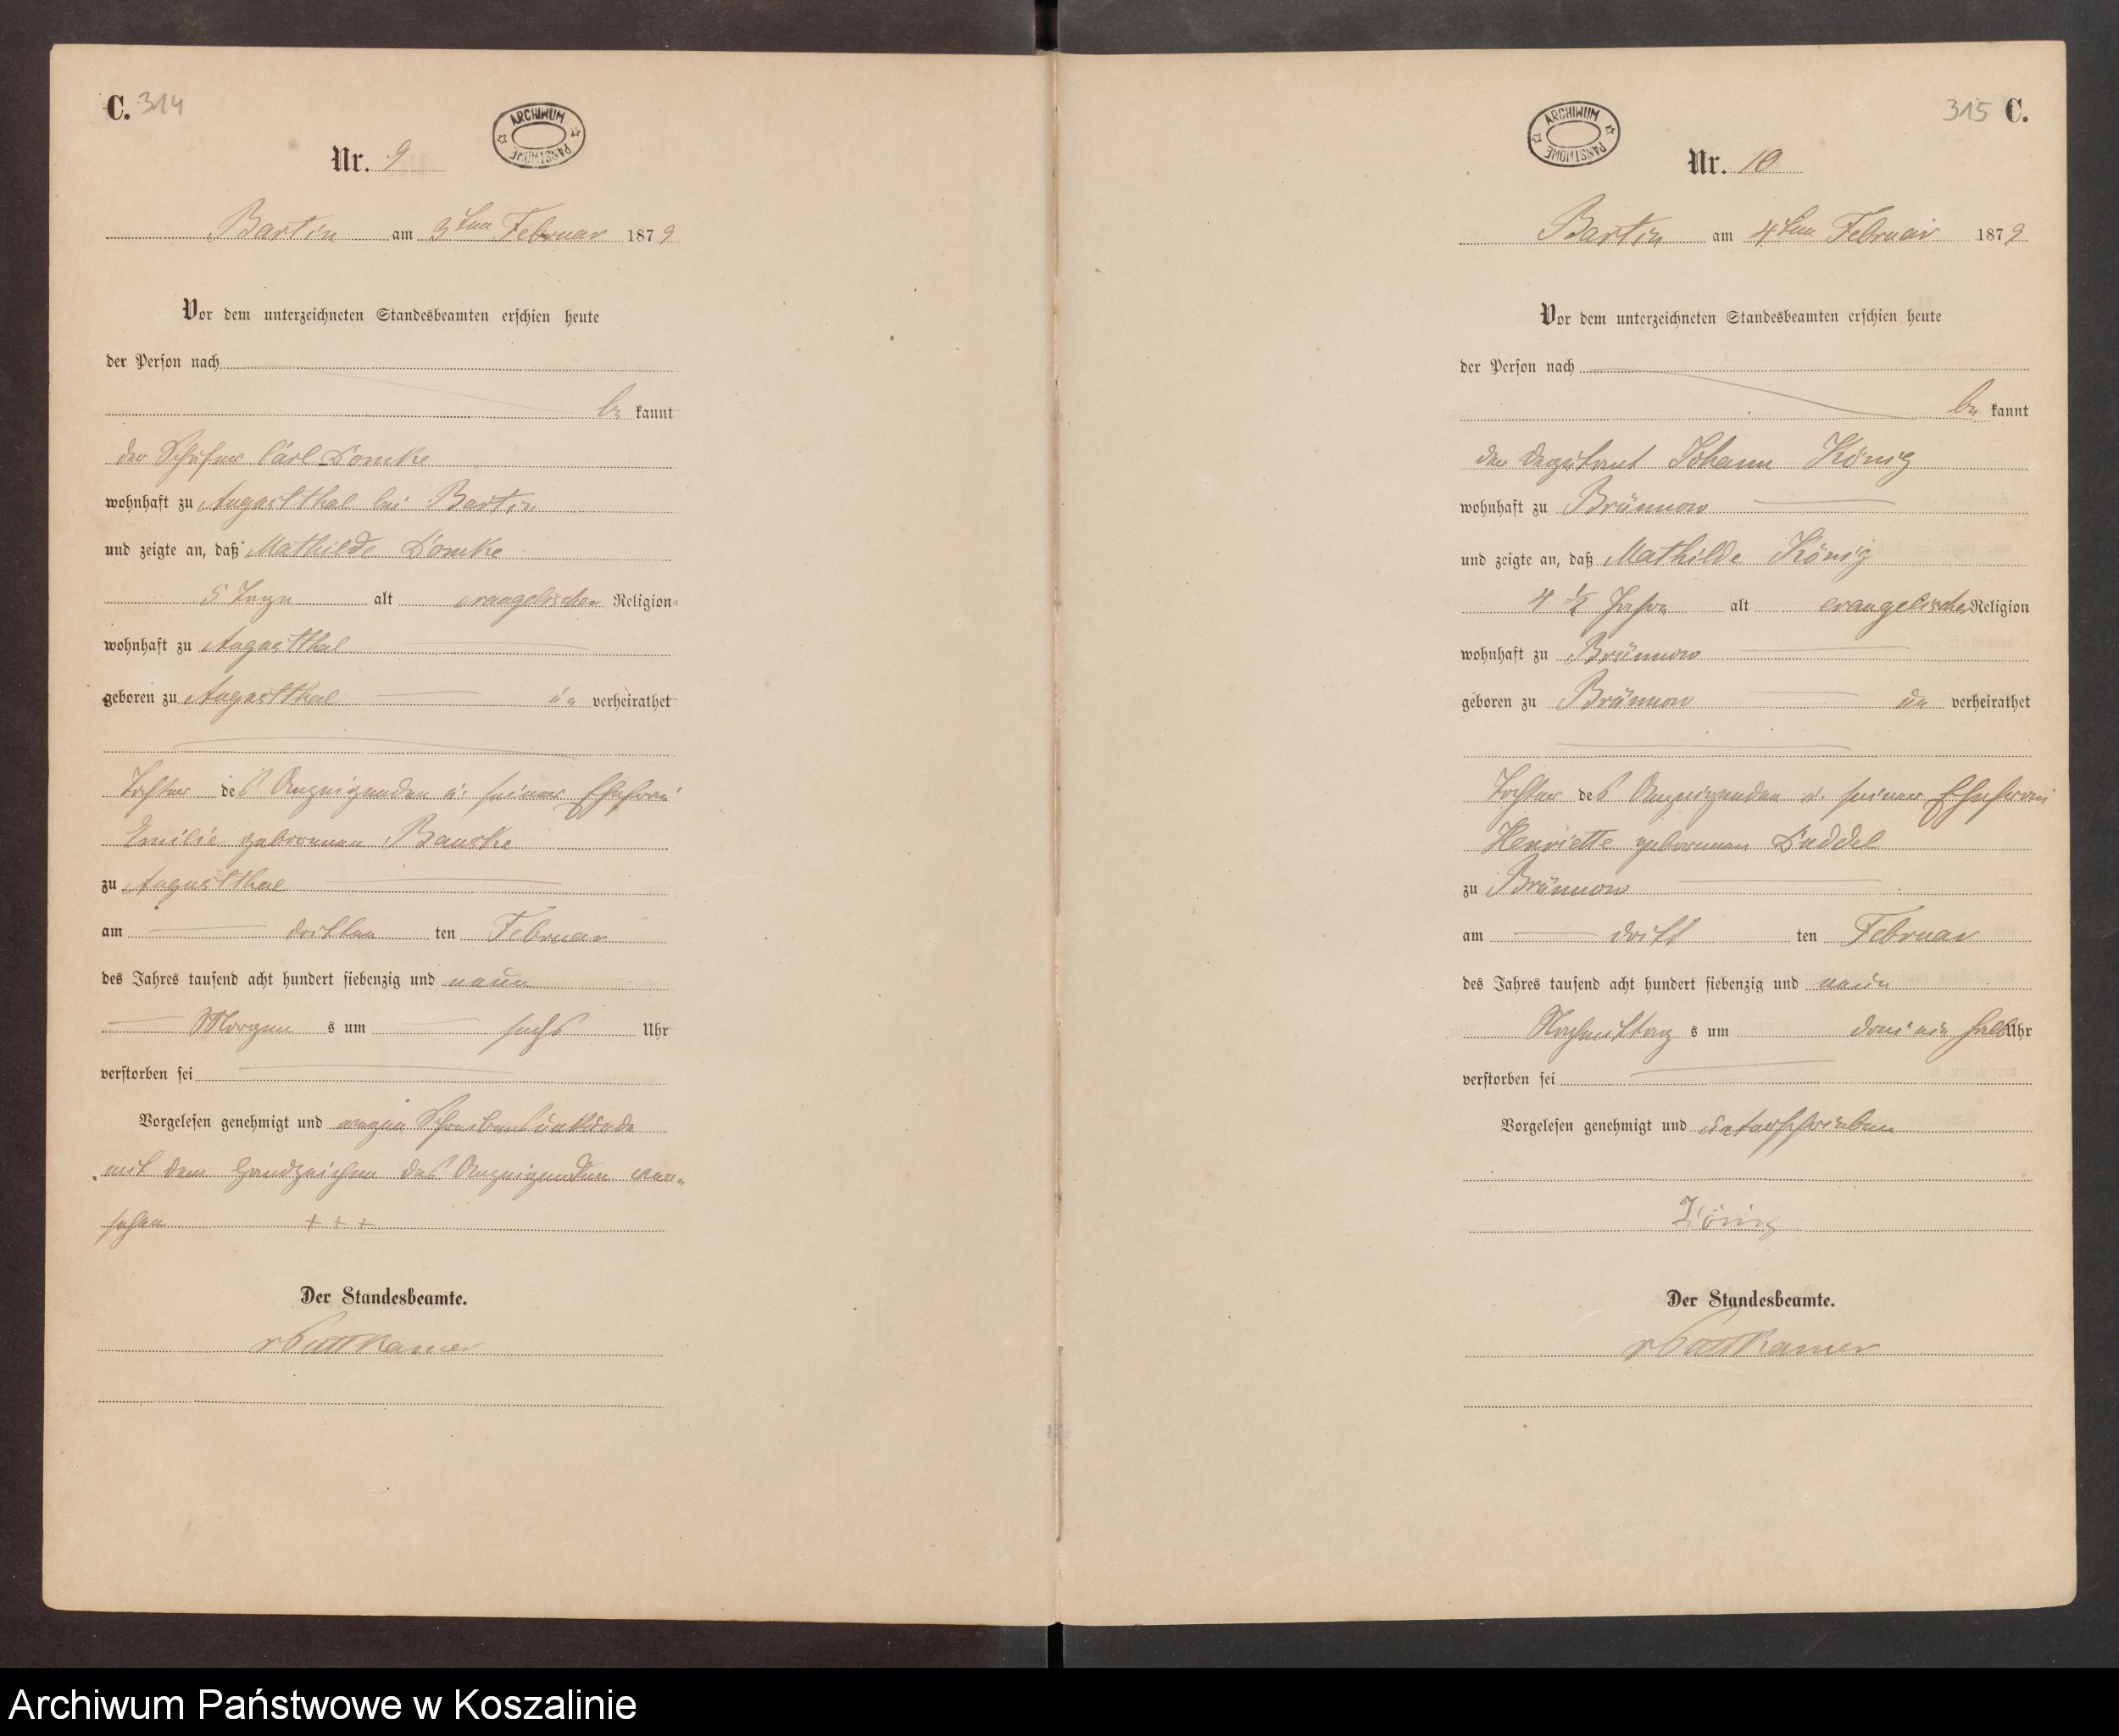 C. 314
ARCHIWUM PAŃSTWOWE
Nr. 9
Bartin am 3ten Februar 1879
Vor dem unterzeichneten Standesbeamten erschien heute
der Person nach
be kannt
der Schäfer Carl Domke
wohnhaft zu Augustthal bei Bartin
und zeigte an, daß Mathilde Domke
5 Tage alt evangelischer Religion
wohnhaft zu Augustthal
geboren zu Augustthal un verheirathet
Tochter des Anzeigenden u. seiner Ehefrau
Emilie geborenen
zu Augustthal
am dritten ten Februar
des Jahres tausend acht hundert siebenzig und neun
Morgen s um sechs Uhr
verstorben sei
Vorgelesen genehmigt und wegen Schreibensunkunde
mit dem Handzeichen des Anzeigenden ver-
sehen + + +
Der Standesbeamte.
vPuttkamer
315 C.
ARCHIWUM PAŃSTWOWE
Nr. 10
Bartin am 4ten Februar 1879
Vor dem unterzeichneten Standesbeamten erschien heute
der Person nach
be kannt
der Deputant Johann König
wohnhaft zu Brünnow
und zeigte an, daß Mathilde König
4 1/2 Jahre alt evangelischer Religion
wohnhaft zu Brünnow
geboren zu Brünnow un verheirathet
Tochter des Anzeigenden u. seiner Ehefrau
Henriette geborenen Duddel
zu Brünnow
am dritt ten Februar
des Jahres tausend acht hundert siebenzig und neun
Nachmittag s um drei ein halb Uhr
verstorben sei
Vorgelesen genehmigt und unterschrieben
König
Der Standesbeamte.
vPuttkamer
Archiwum Państwowe w Koszalinie